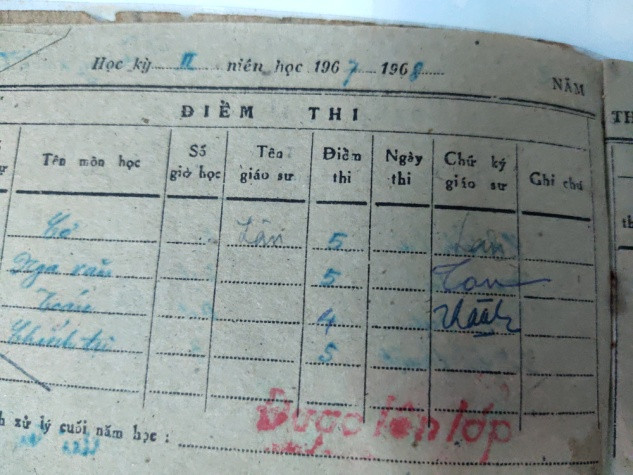 Học kỳ II niên học 1967 1968
NĂM
ĐIỀM THI
TH
Tên môn học Số giờ học Tên giáo sư Điềm thi Ngày thi Chữ ký giáo sư Ghi chú
Lân 5 Lân
Nga văn 5
Toán 4
Chính trị 5
h xử lý cuối năm học : Được lên lớp